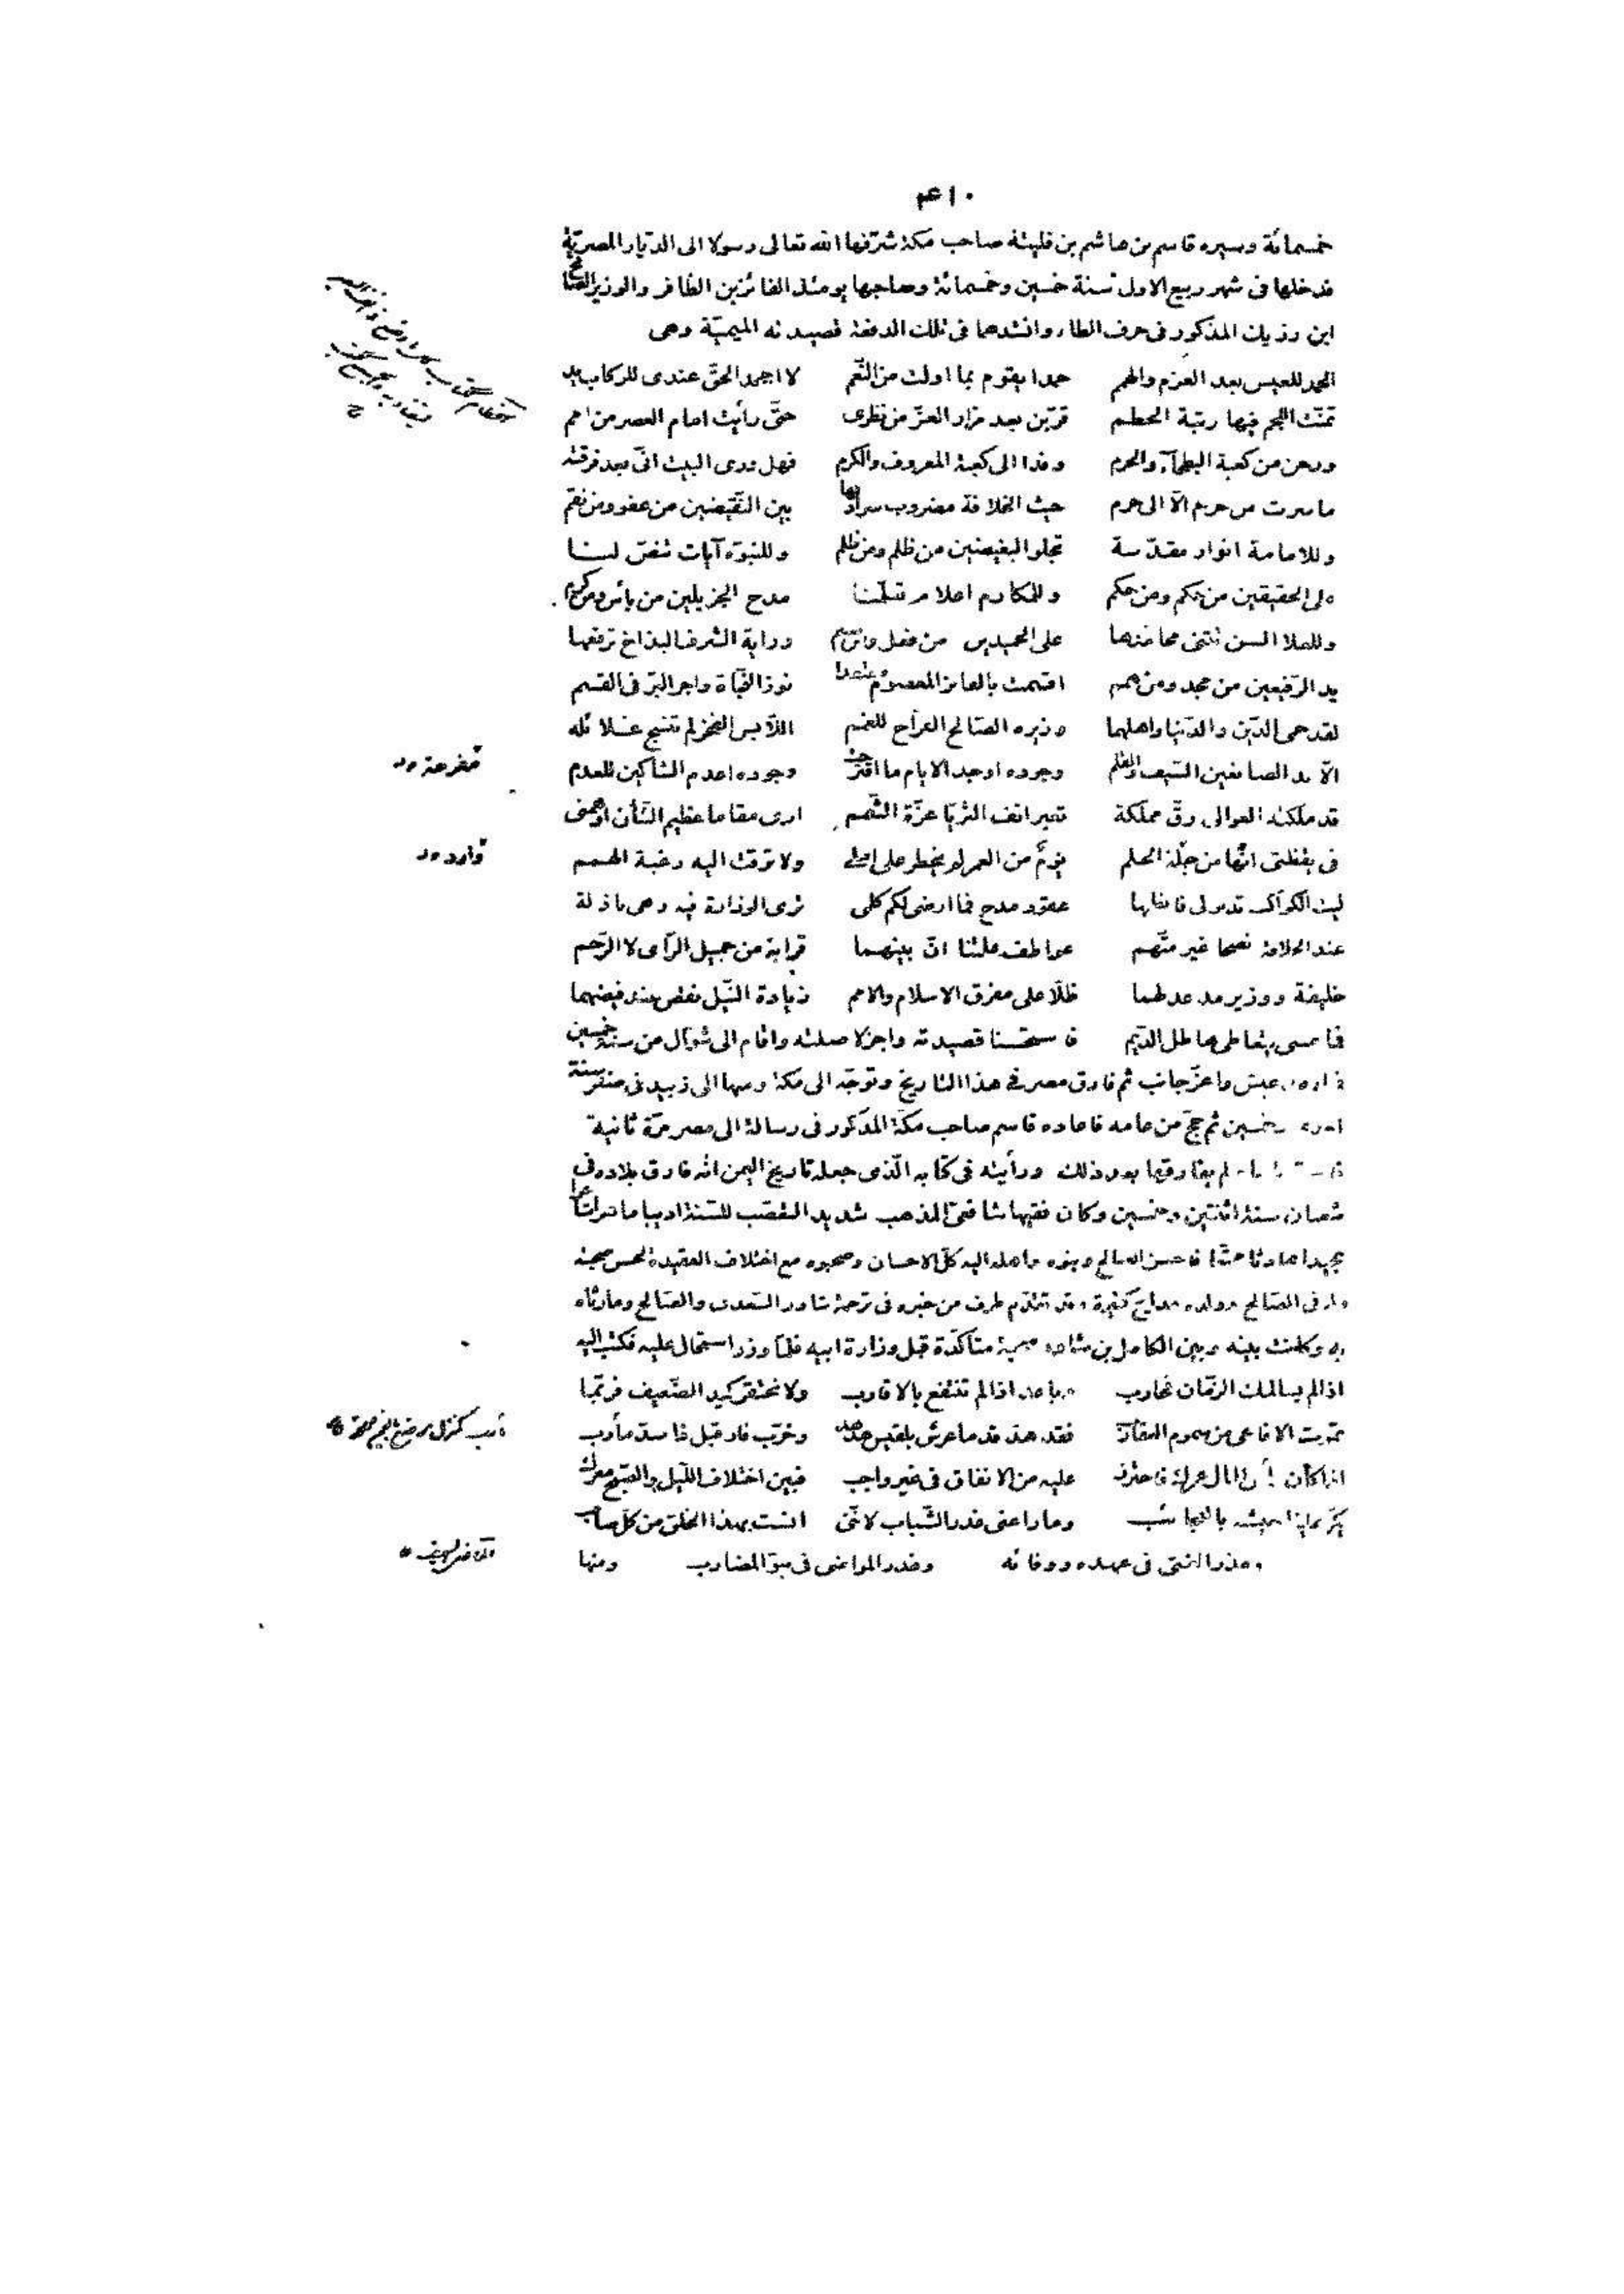 ٤١٠
خمسمائة وسيره قاسم بن هاشم بن فليتة صاحب مكة شرّفها الله تعالى رسولا الى الديار المصريّة
فدخلها فى شهر ربيع الاول سنة خمسين وخمسمائة وصاحبها يومئذ الفائز بن الظافر والوزير الصالح
ابن رزيك المذكور فى حرف الطاء وانشدهما فى تلك الدفعة قصيدته الميميّة وهى
الحمد للعيس بعد العزم والهمم حمدا يقوم بما اولت من النّعم لا اجحد الحقّ عندى للركاب يد
تمنّت اللجم فيها رتبة الخطم قرّبن بعد مزار العزّ من نظرى حتّى رأيت امام العصر من امم
ورحن من كعبة البطحآء والحرم وفدا الى كعبة المعروف والكرم فهل درى البيت انّى بعد فرقته
ما سرت من حرم الّا الى حرم حيث الخلافة مضروب سرادقها بين النّقيضين من عفو ومن نقم
وللامامة انوار مقدّسة تجلو البغيضين من ظلم ومن ظلم وللنبوّة آيات تنصّ لنا
على الحقيقين من حكم ومن حكم وللمكارم اعلام تعلّمنا مدح الجزيلين من بأس ومن كرم
وللعلا السن تثنى محامدها على الحميدين من فعل ومن شيم وراية الشرف البذاخ ترفعها
يد الرّفيعين من مجد ومن همم اقسمت بالفائز المعصوم معتقدا فوز النّجاة واجر البرّ فى القسم
لقد حمى الدّين والدّنيا واهلهما وزيره الصّالح الفرّاج للغمم اللّابس الفخر لم تنسج غلائله
الّا يد الصانعين السّيف والقلم وجوده اوجد الايام ما اقترحت وجوده اعدم الشّاكين للعدم
قد ملّكته العوالى رقّ مملكة تعير انف الثريّا عزّة الشّمم ارى مقاما عظيم الشّأن اوهمنى
فى يقظتى انّها من جملة الحلم يوم من العمر لم يخطر على املى ولا ترقّت اليه رغبة الهمم
ليت الكواكب تدنو لى فانظمها عقود مدح فما ارضى لكم كلمى ترى الوزارة فيه وهى باذلة
عند الخلافة نصحا غير متّهم عواطف علّمتنا انّ بينهما قرابة من جميل الرّأى لا الرّحم
خليفة ووزير مد عدلهما ظلّا على مفرق الاسلام والامم زيادة النّيل نقص عند فيضهما
فما عسى يتعاطى هاطل الديم فاستحسنا قصيدته واجزلا صلته واقام الى شوّال من سنة خمسين
فى ارغد عيش واعزّ جانب ثم فارق مصر فى هذا التاريخ وتوجّه الى مكة ومنها الى زبيد فى صفر سنة
احدى وخمسين ثم حجّ من عامه فاعاده قاسم صاحب مكّة المذكور فى رسالة الى مصر مرّة ثانية
ولم يفارقها بعد ذلك ورأيته فى كتابه الّذى جعله تاريخ اليمن انّه فارق بلاده فى
شعبان سنة اثنتين وخمسين وكان فقيها شافعىّ المذهب شديد التعصّب للسّنة اديبا ماهرا شاعرا
مجيدا محادثا ممتعا فاحسن الصالح وبنوه واهله اليه كلّ الاحسان وصحبوه مع اختلاف العقيدة لحسن صحبته
وله فى الصّالح وولده مدائح كثيرة وقد تقدّم طرف من خبره فى ترجمة شاور السّعدى والصّالح وما رثاه
به وكانت بينه وبين الكامل بن شاور صحبة متأكّدة قبل وزارة ابيه فلمّا وزر استحال عليه فكتب اليه
اذا لم يسالمك الزمّان فحارب وباعد اذا لم تنتفع بالاقارب ولا تحتقر كيد الضّعيف فربّما
تموت الافاعى من سموم العقارب فقد هدّ قدما عرش بلقيس هدهد وخرّب فار قبل ذا سدّ مأرب
اذا كان رأس المال عمرك فاحترز عليه من الانفاق فى غير واجب فبين اختلاف اللّيل والصّبح معرك
يكرّ علينا جيشه بالعجائب وما راعنى غدر الشّباب لانّنى انست بهذا الخلق من كلّ صاحب
وغدر الفتى فى عهده ووفائه وغدر المواضى فى نبوّ المضارب ومنها